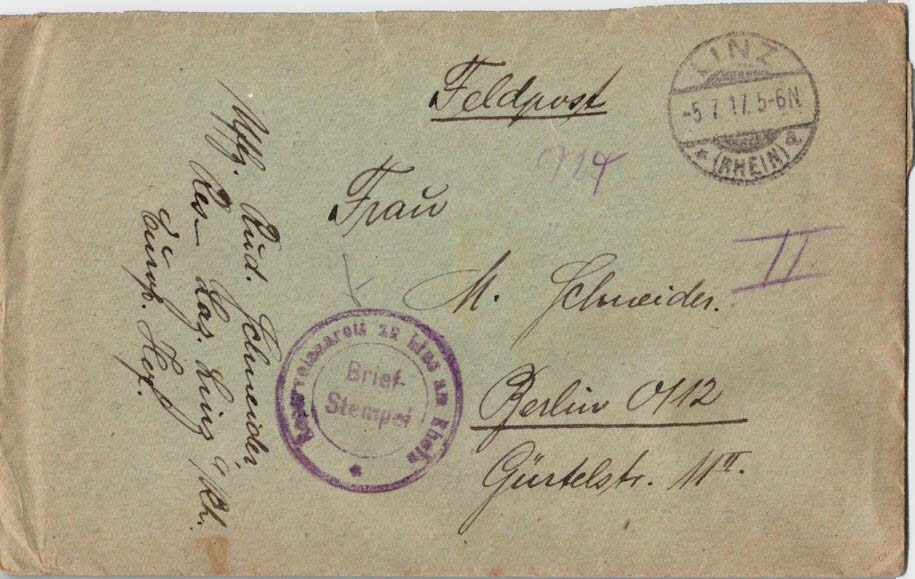 Feldpost
LINZ
-5.7.17.5-6N.
* (RHEIN) a
Frau
M. Schneider.
Berlin O112
Gürtelstr. 11II.
II
Reservelazarett zu Linz am Rhein
Brief-
Stempel
*
Rud. Schneider
Res. Laz. Linz a/Rh.